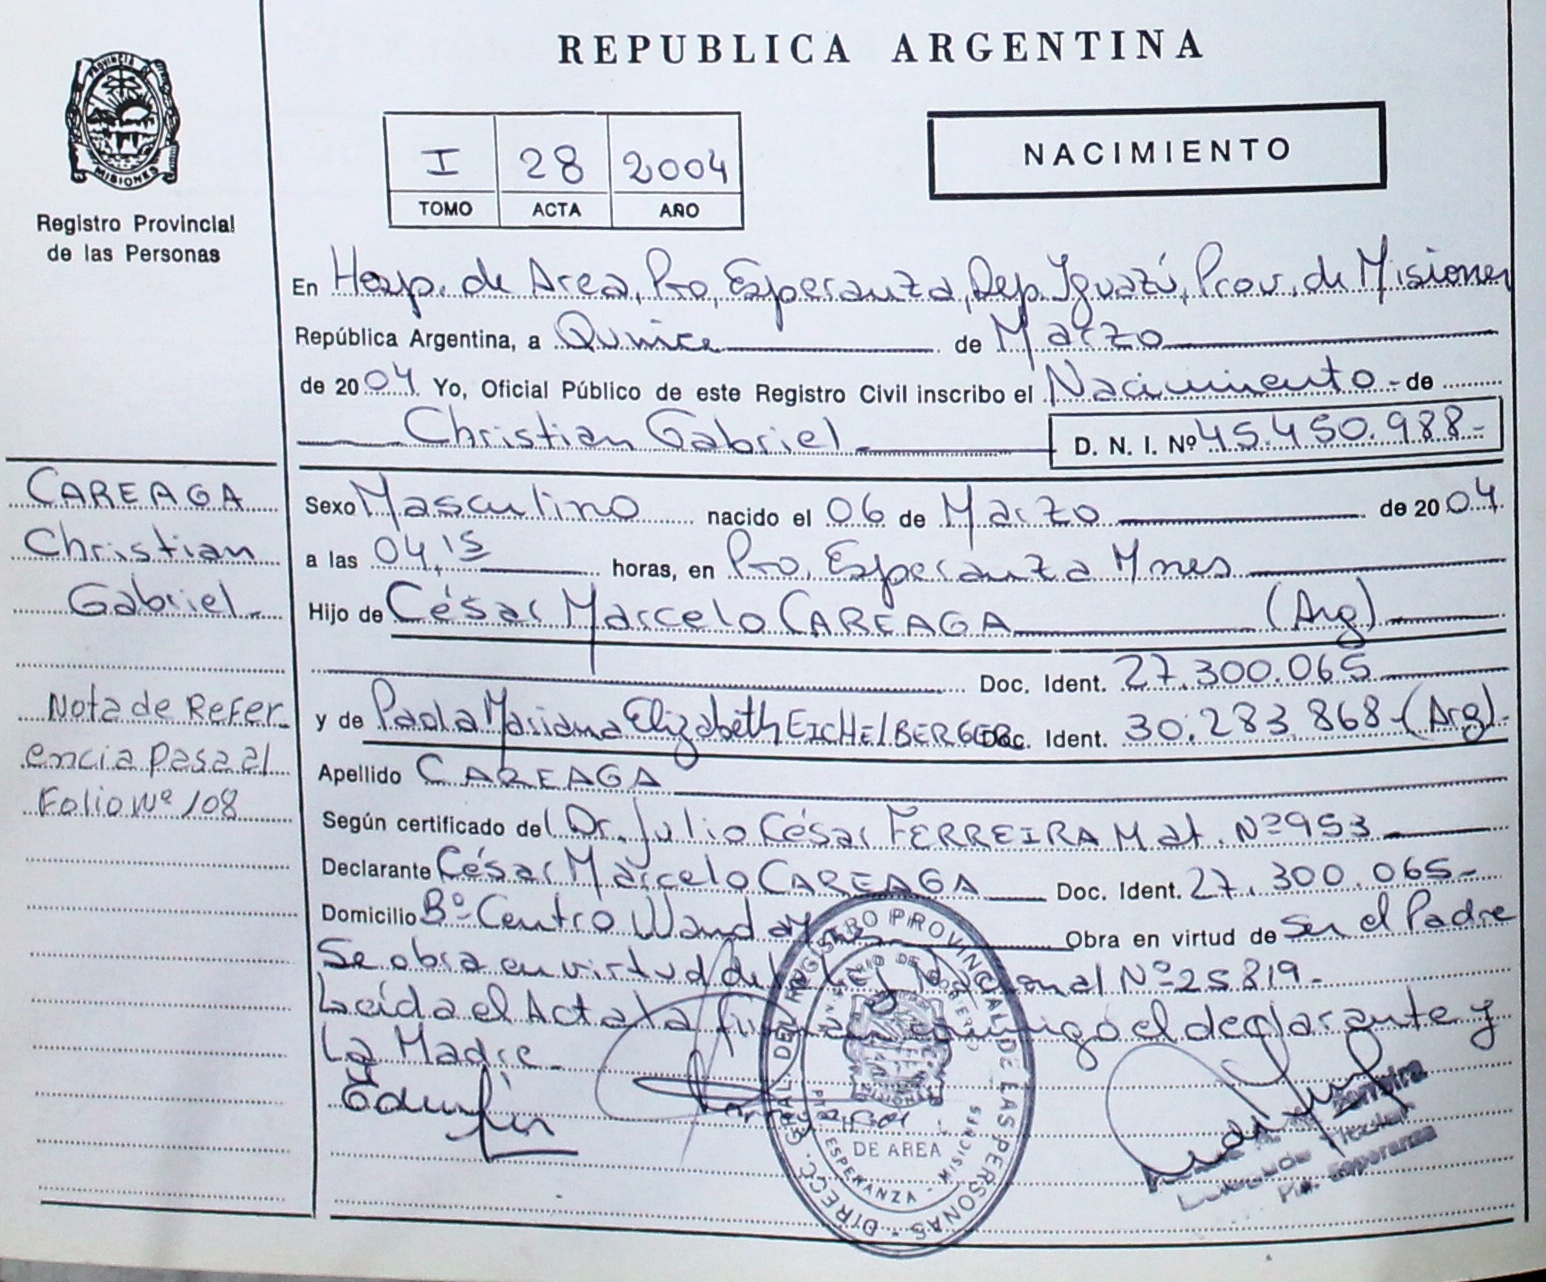 REPUBLICA ARGENTINA
PROVINCIA DE
MISIONES
Registro Provincial
de las Personas
I 28 2004
TOMO ACTA AÑO
NACIMIENTO
En Hosp. de Area, Pto, Esperanza, Dep. Iguazú, Prov. de Misiones
República Argentina, a Quince de Marzo
de 2004 Yo, Oficial Público de este Registro Civil inscribo el Nacimiento - de
Christian Gabriel D. N. I. Nº 45.450.988-
CAREAGA
Christian
Gabriel
Nota de Refer
encia pasa al
Folio Nº 108
Sexo Masculino nacido el 06 de Marzo de 2004
a las 04,15 horas, en Pto, Esperanza Mnes
Hijo de César Marcelo CAREAGA (Arg)
Doc. Ident. 27.300.065
y de Paola Mariana Elizabeth EICHELBERGER Doc. Ident. 30.283.868-(Arg)-
Apellido CAREAGA
Según certificado del Dr. Julio César FERREIRA Mat. Nº 953
Declarante César Marcelo CAREAGA Doc. Ident. 27.300.065-
Domicilio Bº Centro Wanda Mnes Obra en virtud de ser el Padre
Se obra en virtud de la Ley Nacional Nº 25819-
Leída el Acta la firman conmigo el declarante y
La Madre
DIRECC. GRAL. DEL REGISTRO PROVINCIAL DE LAS PERSONAS
DE AREA
ESPERANZA - MISIONES
Titular
Pto. Esperanza